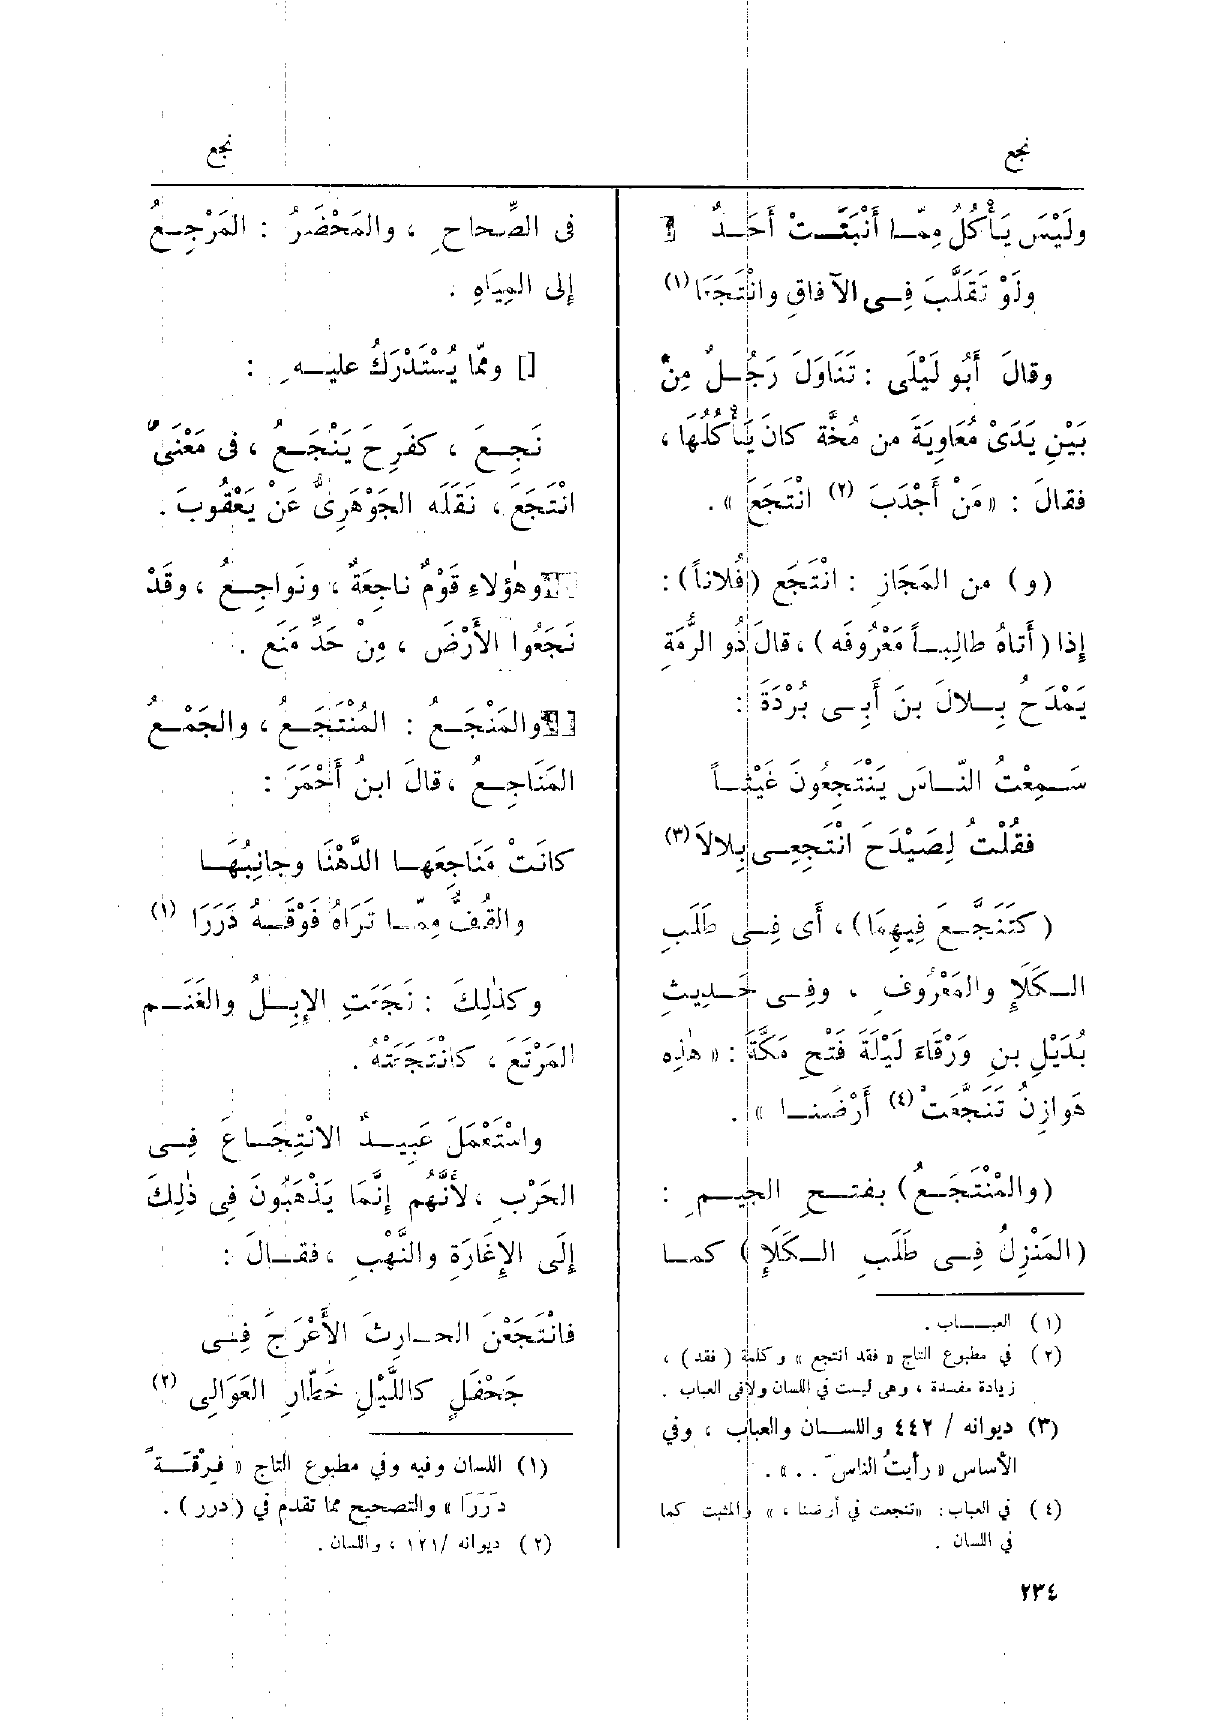 نجع
نجع
ولَيْسَ يَأْكُلُ مِمّا أَنْبَتَتْ أَحَدٌ
ولَوْ تَقَلَّبَ فِى الآفاقِ وانْتَجَعَا (١)
وقالَ أَبُو لَيْلَى : تَنَاوَلَ رَجُلٌ مِنْ
بَيْنِ يَدَىْ مُعَاوِيَةَ من مُخَّة كانَ يَأْكُلُهَا ،
فقالَ : « مَنْ أَجْدَبَ (٢) انْتَجَعَ » .
(و) من المَجَازِ : انْتَجَع (فُلاناً) :
إذا (أَتاهُ طالِباً مَعْرُوفَه) ، قالَ ذُو الرُّمَةِ
يَمْدَحُ بِلالَ بنَ أَبِى بُرْدَةَ :
سَمِعْتُ النّاسَ يَنْتَجِعُونَ غَيْثاً
فقُلْتُ لِصَيْدَحَ انْتَجِعِى بِلالاَ (٣)
(كتَنَجَّعَ فِيهِمَا) ، أَى فِى طَلَبِ
الكَلَإِ والمَعْرُوفِ ، وفِى حَدِيثِ
بُدَيْلِ بنِ وَرْقَاءَ لَيْلَةَ فَتْحِ مَكَّةَ : « هٰذِه
هَوازِنُ تَنَجَّعَتْ (٤) أَرْضَنا » .
(والمُنْتَجَعُ) بفتحِ الجيمِ :
(المَنْزِلُ فِى طَلَبِ الكَلَإِ) كما
(١) العباب .
(٢) في مطبوع التاج « فقد انتجع » وكلمة (فقد) ،
زيادة مفسدة ، وهى ليست في اللسان ولافى العباب .
(٣) ديوانه / ٤٤٢ واللسان والعباب ، وفي
الأساس « رأيتُ الناسَ . . » .
(٤) في العباب : «تنجعت في أرضنا ، » والمثبت كما
في اللسان .
فى الصِّحاحِ ، والمَحْضَرُ : المَرْجِعُ
إلى المِيَاهِ .
[] وممّا يُسْتَدْرَكُ عليهِ :
نَجِعَ ، كفَرِحَ يَنْجَعُ ، فى مَعْنَى
انْتَجَعَ ، نَقَلَه الجَوْهَرِىُّ عَنْ يَعْقُوبَ .
وهٰؤلاءِ قَوْمٌ ناجِعَةٌ ، ونَواجِعُ ، وقَدْ
نَجَعُوا الأَرْضَ ، مِنْ حَدِّ مَنَع .
والمَنْجَعُ : المُنْتَجَعُ ، والجَمْعُ
المَنَاجِعُ ، قالَ ابنُ أَحْمَرَ :
كانَتْ مَناجِعَها الدَّهْنَا وجانِبُهَا
والقُفُّ مِمّا تَرَاهُ فَوْقَهُ دَرَرَا (١)
وكذٰلِكَ : نَجَعَتِ الإِبِلُ والغَنَم
المَرْتَعَ ، كانْتَجَعَتْهُ .
واسْتَعْمَلَ عَبِيدٌ الانْتِجاعَ فِى
الحَرْبِ ، لأَنَّهُم إِنَّمَا يَذْهَبُونَ فِى ذٰلِكَ
إِلَى الإِغَارَةِ والنَّهْبِ ، فقالَ :
فانْتَجَعْنَ الحارِثَ الأَعْرَجَ فِى
جَحْفَلٍ كاللَّيْلِ خَطّارِ العَوَالِى (٢)
(١) اللسان وفيه وفي مطبوع التاج « فِرْقَةً
دَرَرَا » والتصحيح مما تقدم في (درر) .
(٢) ديوانه /١٢١ ، واللسان .
٢٣٤